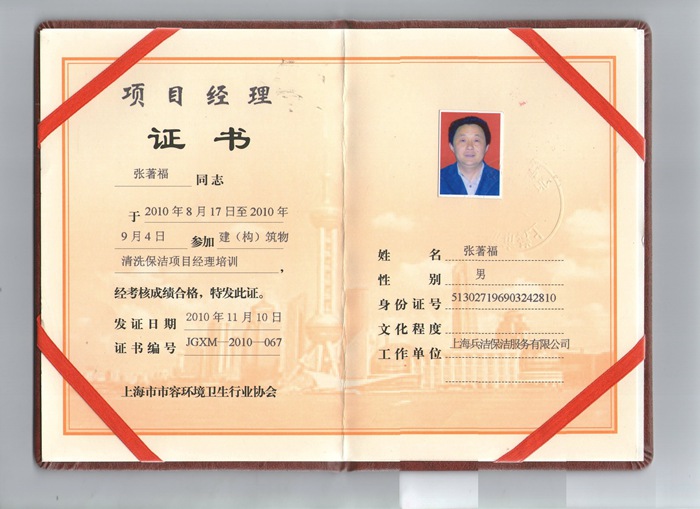 项目经理
证书
张著福 同志
于 2010年8月17日至2010年
9月4日 参加 建（构）筑物
清洗保洁项目经理培训，
经考核成绩合格，特发此证。
发证日期 2010年11月10日
证书编号 JGXM—2010—067
上海市市容环境卫生行业协会
姓名 张著福
性别 男
身份证号 513027196903242810
文化程度
工作单位 上海兵洁保洁服务有限公司